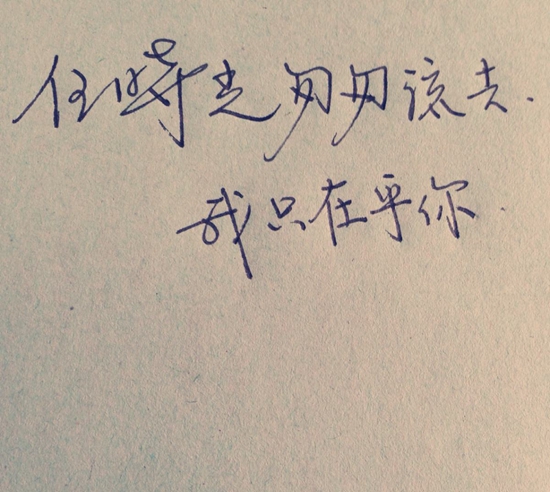 任時光匆匆该去.
我只在乎你.